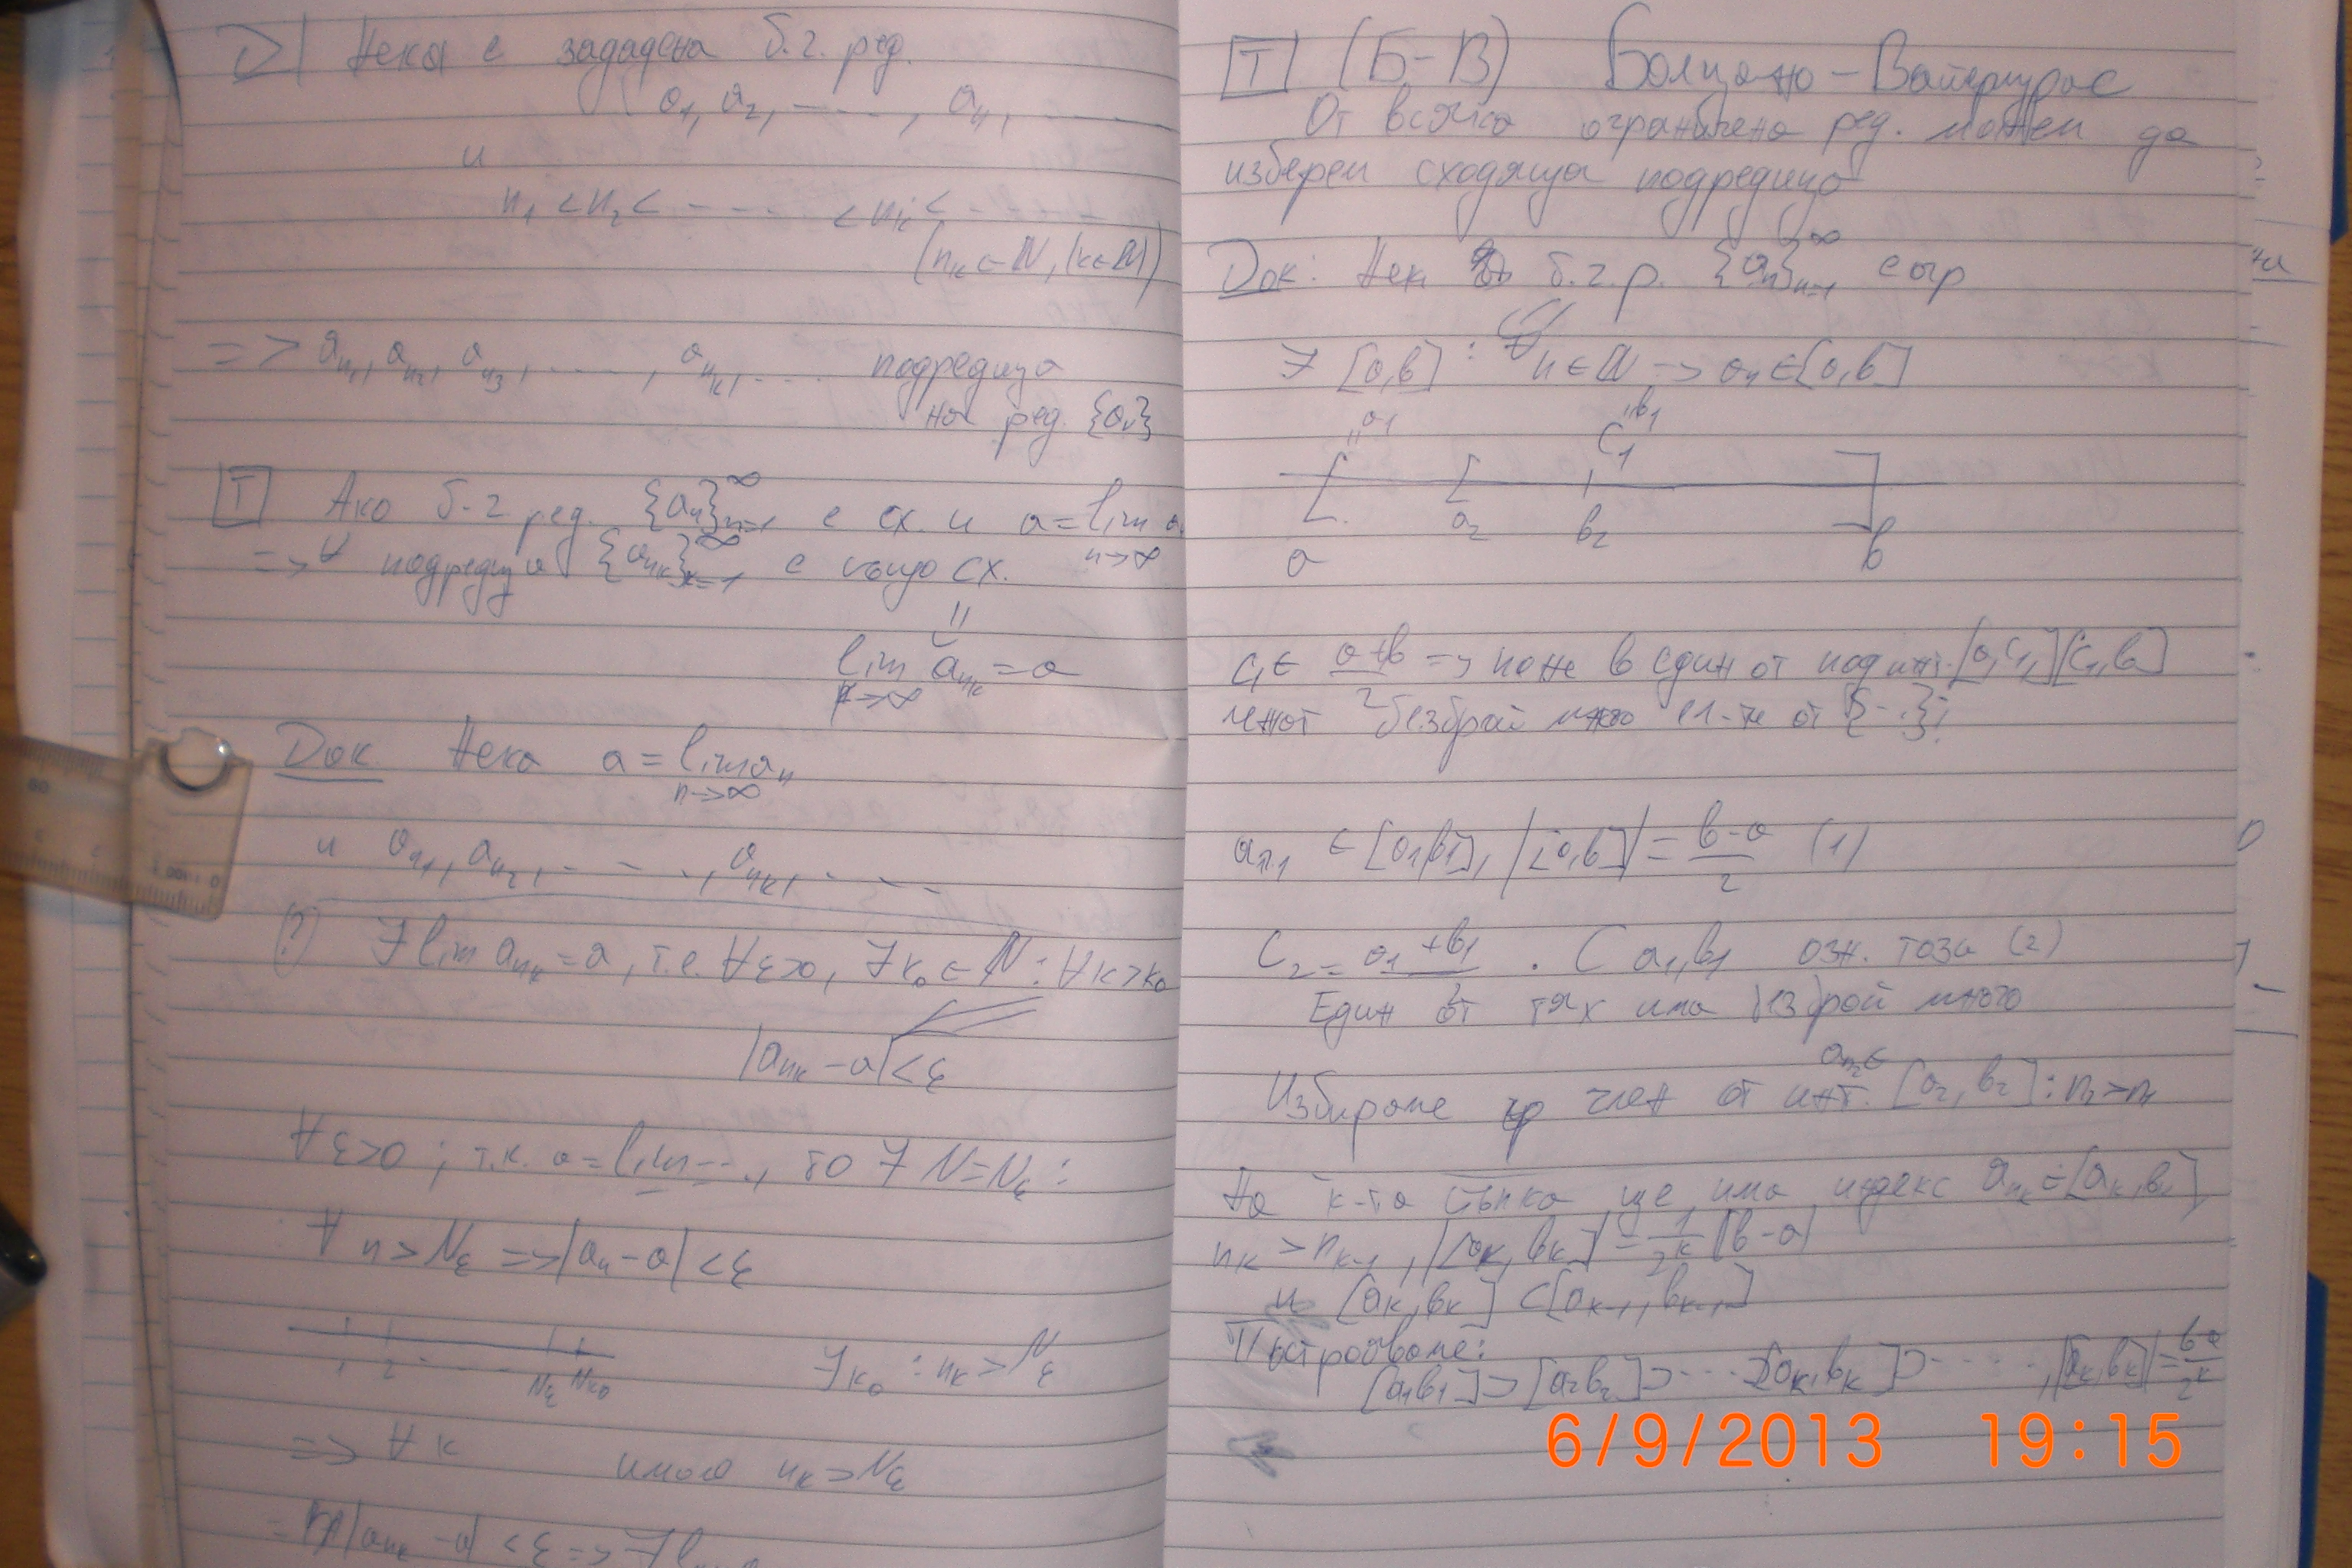 D| Нека е зададена б.г. ред.
a₁, a₂, ----, aₙ, ----
и
n₁ < n₂ < ---- < nₖ < ----
(nₖ ∈ N, k∈N)
=> aₙ₁, aₙ₂, aₙ₃, ----, aₙₖ, --- подредица
на ред. {aₙ}
T Ако б.г ред. {aₙ}ₙ₌₁^∞ е сх. и a = lim a
n→∞
=> ∀ подредица {aₙₖ}ₖ₌₁^∞ е също сх.
lim aₙₖ = a
k→∞
Док. Нека a = lim aₙ
n→∞
и aₙ₁, aₙ₂, ----, aₙₖ, ----
(?) ∃ lim aₙₖ = a, т.е. ∀ε>0, ∃ k₀ ∈ N : ∀k>k₀
|aₙₖ - a| < ε
∀ε>0 ; т.к. a = lim ---, то ∃ N = Nε :
∀ n > Nε => |aₙ - a| < ε
1 2 ---- Nε Nₖ₀
∃k₀ : nₖ > Nε
=> ∀ k имаме nₖ > Nε
|aₙₖ - a| < ε => ∃ l
T (Б-В) Болцано - Вайерщрас
От всяка ограничена ред. можем да
изберем сходяща подредица
Док: Нек б.г.р. {aₙ}ₙ₌₁^∞ е огр
∃ [a,b] : ∀ n ∈ N -> aₙ ∈ [a,b]
"a₁ "b₁
c₁
a a₂ b₂ b
c₁ ∈ (a+b)/2 => поне в един от подинт. [a,c₁] [c₁,b]
безброй много ел-ти от {--}!
aₙ₁ ∈ [a₁,b₁], |[a,b]| = (b-a)/2 (1)
c₂ = (a₁+b₁)/2 . С a₁,b₁ озн. това (2)
Един от тях има безброй много
aₙ₂∈
Избираме член от инт. [a₂, b₂] : n₂ > n₁
На k-та стъпка ще има индекс aₙₖ ∈ [aₖ, bₖ]
nₖ > nₖ₋₁, |[aₖ, bₖ]| = 1/2ᵏ |b-a|
и [aₖ, bₖ] ⊂ [aₖ₋₁, bₖ₋₁]
Построяваме:
[a₁b₁] ⊃ [a₂b₂] ⊃ --- ⊃ [aₖ,bₖ] ⊃ ----, |[aₖ,bₖ]| = (b-a)/2ᵏ
6/9/2013 19:15